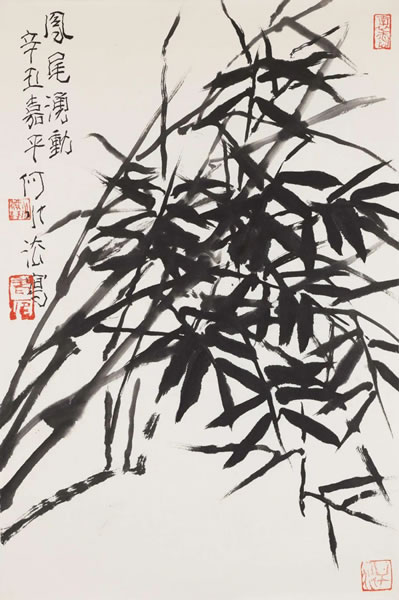 鳳尾湧動
辛丑嘉平何水法寫